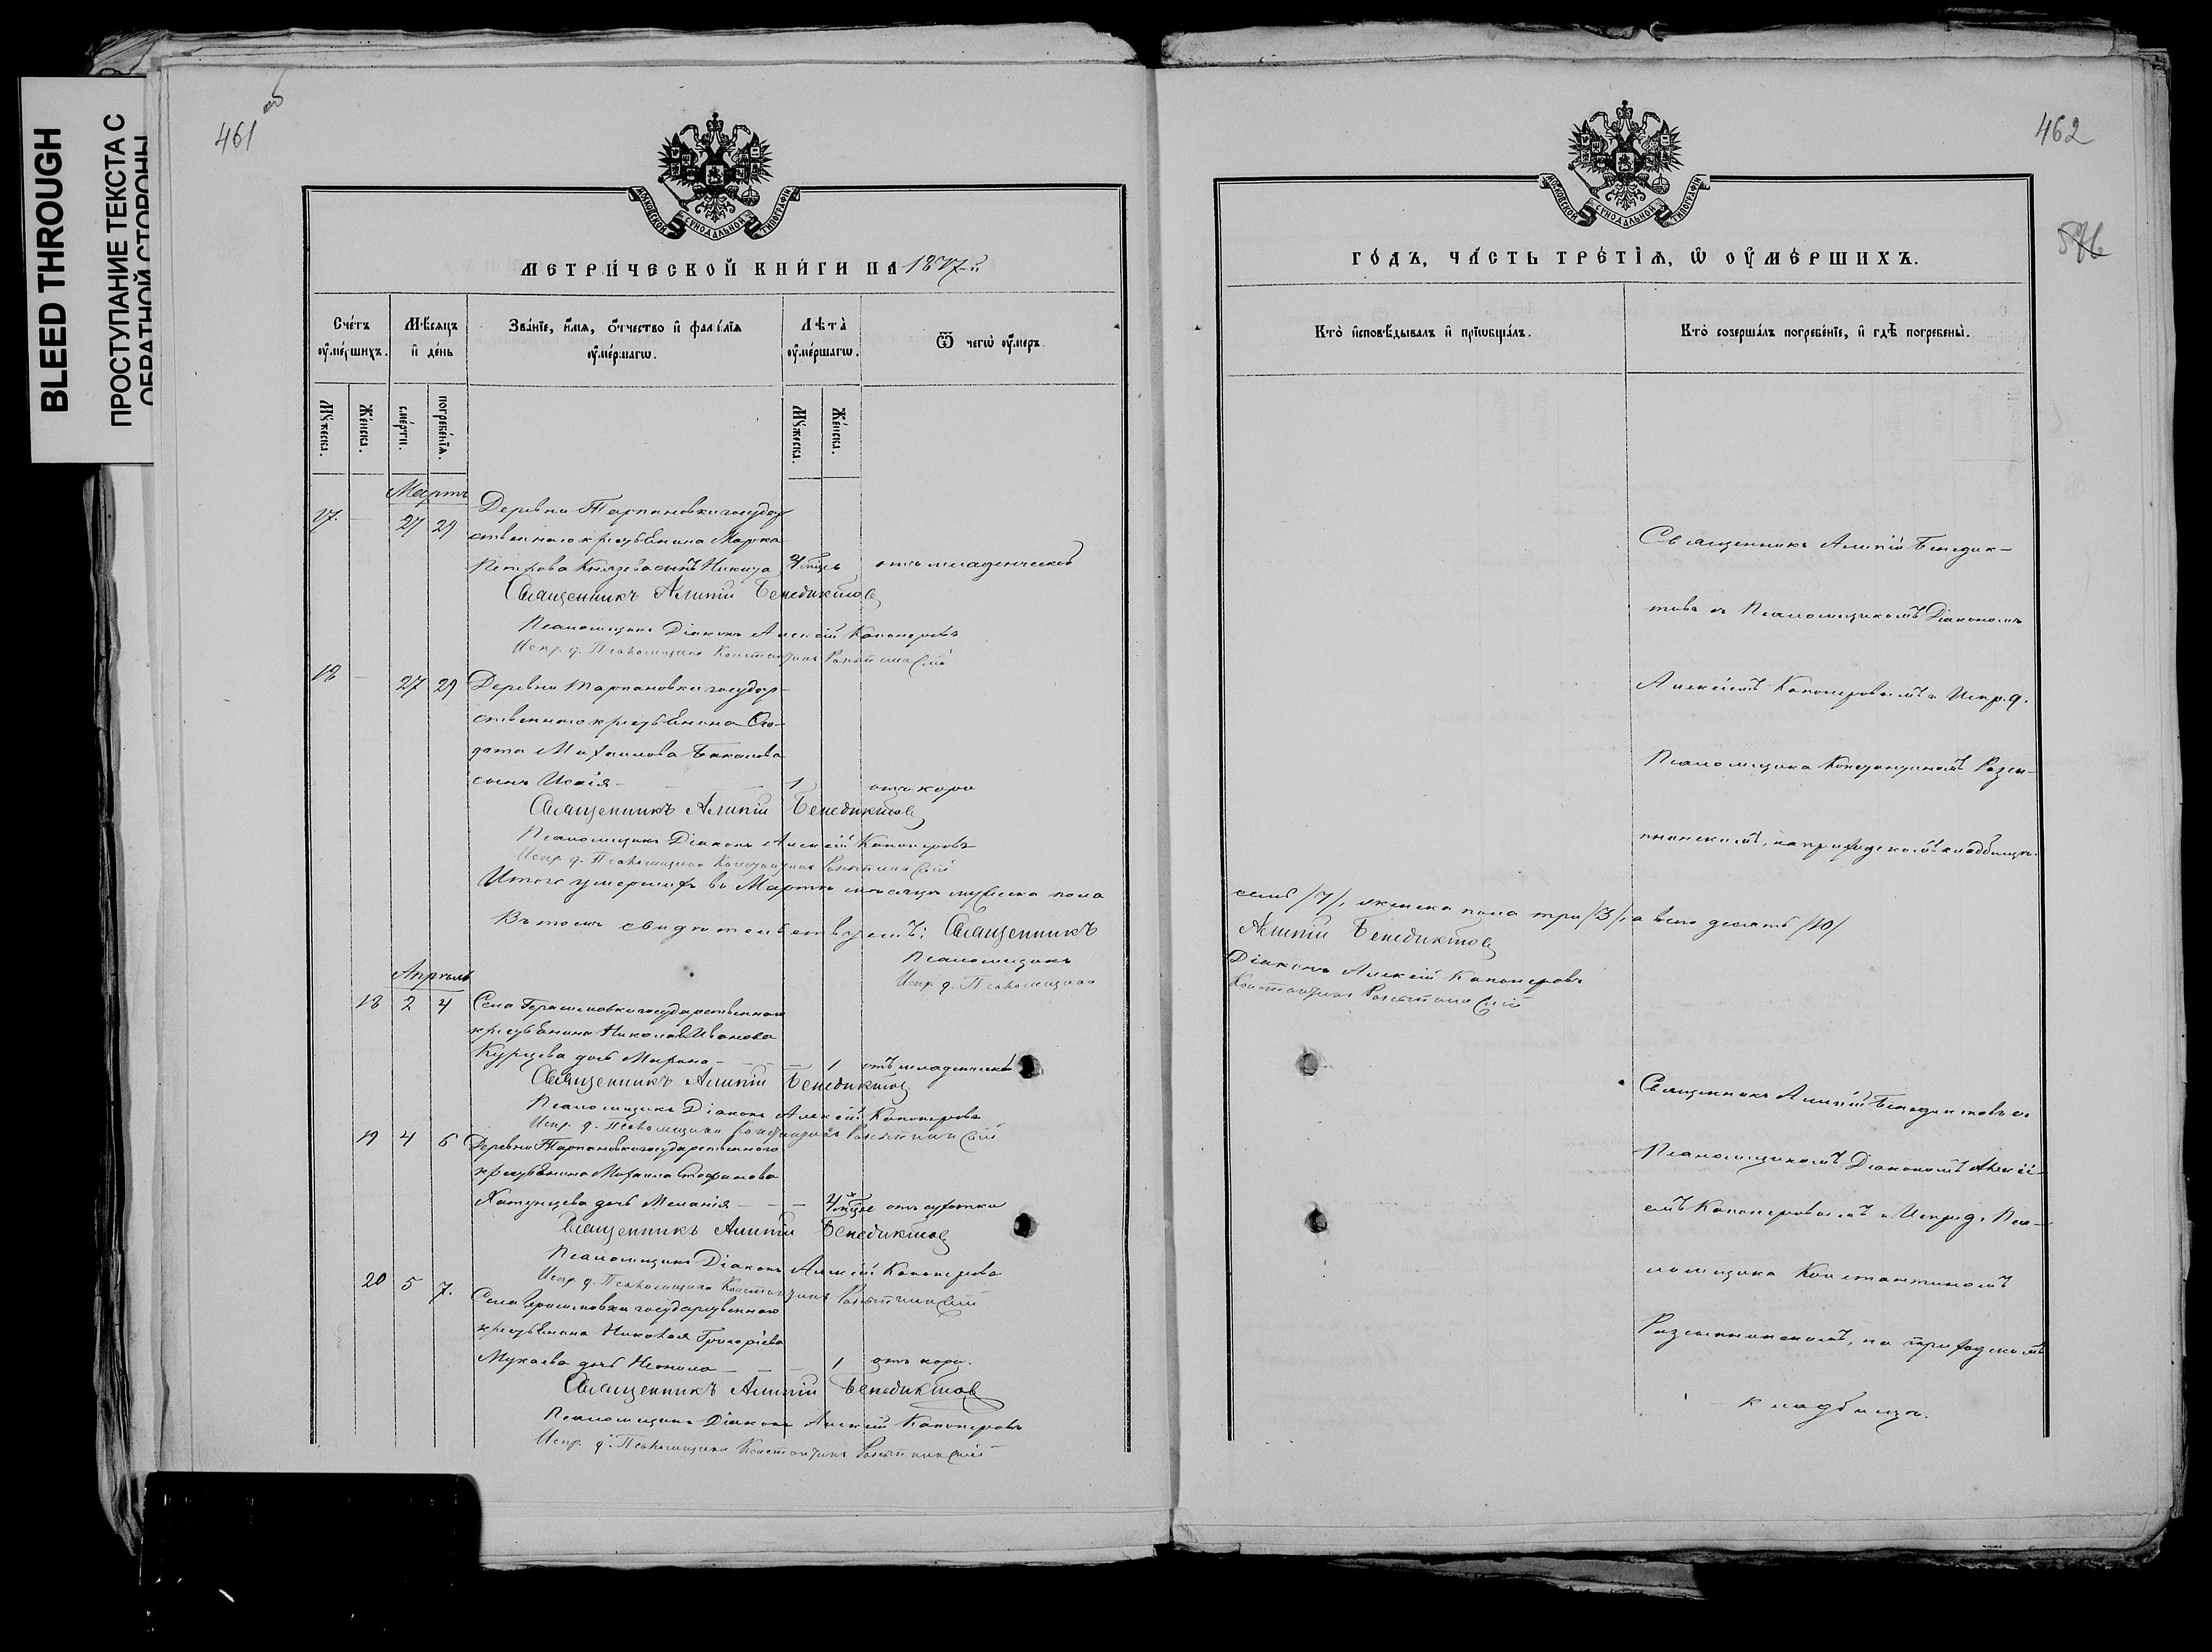 BLEED THROUGH
ПРОСТУПАНИЕ ТЕКСТА С
ОБРАТНОЙ СТОРОНЫ
461 об
МОСКОВСКОЙ СѴНОДАЛЬНОЙ ТИПОГРАФІИ
МЕТРИ́ЧЕСКОЙ КНИ́ГИ НА 1877-й
Сче́тъ ѹ҆ме́ршихъ.
Мѣ́сяцъ и҆ де́нь
Зва́нїе, и҆́мя, ѻ҆́тчество и҆ фамі́лїя ѹ҆ме́ршагѡ.
Лѣта̀ ѹ҆ме́ршагѡ.
Ѿ чегѡ̀ ѹ҆́меръ.
Мꙋ́жеска.
Же́нска.
сме́рти.
погребе́нїя.
Мꙋ́жеска.
Же́нска.
Мартъ
17. - 27 29 Деревни Тарпановки государ
ственнаго крестьянина Марка
Петрова Князева сынъ Никита 4 мѣсц от младенческой
Священникъ Алипій Бенедиктов
Псаломщикъ Діаконъ Алексій Канонеровъ
Испр. д. Псаломщика Константинъ
18 - 27 29 Деревни Тарпановки государ-
ственнаго крестьянина Ѳео-
дота Михаилова Бакалова
сынъ Исаія - 1 отъ кори
Священникъ Алипій Бенедиктов
Псаломщикъ Діаконъ Алексій Канонеровъ
Испр. д. Псаломщика Константинъ
Итого умершихъ въ Мартѣ мѣсяцѣ мужеска пола
Въ томъ свидѣтельствуемъ: Священникъ
Псаломщикъ
Испр. д. Псаломщика
Апрѣль
18 2 4 Села Герасимовки государственнаго
крестьянина Николая Иванова
Курцева дочь Марина - 1 отъ младенческой
Священникъ Алипій Бенедиктов
Псаломщикъ Діаконъ Алексій Канонеровъ
Испр. д. Псаломщика Константинъ
19 4 6 Деревни Тарпановки государственнаго
крестьянина Михаила Стефанова
Хатунцева дочь Меланія - - 4 мѣсц отъ сухотки
Священникъ Алипій Бенедиктов
Псаломщикъ Діаконъ Алексій Канонеровъ
Испр. д. Псаломщика Константинъ
20 5 7. Села Герасимовки государственнаго
крестьянина Николая Григоріева
Мукаева дочь Неонила - 1 отъ кори.
Священникъ Алипій Бенедиктов
Псаломщикъ Діаконъ Алексій Канонеровъ
Испр. д. Псаломщика Константинъ
462
МОСКОВСКОЙ СѴНОДАЛЬНОЙ ТИПОГРАФІИ
ГО́ДЪ, ЧА́СТЬ ТРЕ́ТЇЯ, Ѡ҆ ОУ҆МЕ́РШИХЪ.
Кто̀ и҆сповѣ́дывалъ и҆ прїѡбща́лъ.
Кто̀ соверша́лъ погребе́нїе, и҆ гдѣ̀ погребены̀.
Священникъ Алипій Бенедик-
товъ съ Псаломщикомъ Діакономъ
Алексіемъ Канонеровымъ и Испр. д.
Псаломщика Константиномъ
на приходскомъ кладбищѣ.
семь /7/, женска пола три /3/, а всего десять /10/
Алипій Бенедиктов
Діаконъ Алексій Канонеровъ
Константинъ
Священникъ Алипій Бенедиктовъ съ
Псаломщикомъ Діакономъ Алексі-
емъ Канонеровымъ и Испр. д. Пса-
ломщика Константиномъ
на приходскомъ
кладбищѣ.